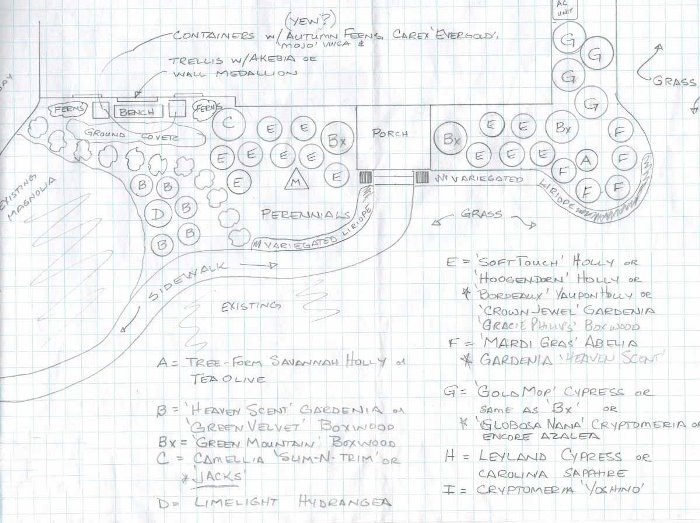 (YEW?)
CONTAINERS W/ AUTUMN FERNS, CAREX 'EVERGOLD',
'MOJO' VINCA &
TRELLIS W/ AKEBIA OR
WALL MEDALLION
AC
UNIT
G
G
G
G
GRASS
FERNS
BENCH
FERNS
GROUND COVER
C
E
E
Bx
E
E
E
E
E
M
E
PORCH
Bx
E
E
E
Bx
F
E
E
E
F
A
F
F
F
EXISTING
MAGNOLIA
B
B
D
B
B
B
PERENNIALS
VARIEGATED LIRIOPE
VARIEGATED
LIRIOPE
GRASS
SIDEWALK
EXISTING
E = 'SOFT TOUCH' HOLLY OR
'HOOGENDORN' HOLLY OR
* 'BORDEAUX' YAUPON HOLLY OR
'CROWN JEWEL' GARDENIA
'GRACIE PHILLIPS' BOXWOOD
F = 'MARDI GRAS' ABELIA
* GARDENIA 'HEAVEN SCENT'
G = 'GOLD MOP' CYPRESS OR
SAME AS 'Bx' OR
* 'GLOBOSA NANA' CRYPTOMERIA OR
ENCORE AZALEA
H = LEYLAND CYPRESS OR
CAROLINA SAPPHIRE
I = CRYPTOMERIA 'YOSHINO'
A = TREE-FORM SAVANNAH HOLLY OR
TEA OLIVE
B = 'HEAVEN SCENT' GARDENIA OR
'GREEN VELVET' BOXWOOD
Bx = 'GREEN MOUNTAIN' BOXWOOD
C = CAMELLIA 'SLIM-N-TRIM' OR
* 'JACKS'
D = LIMELIGHT HYDRANGEA